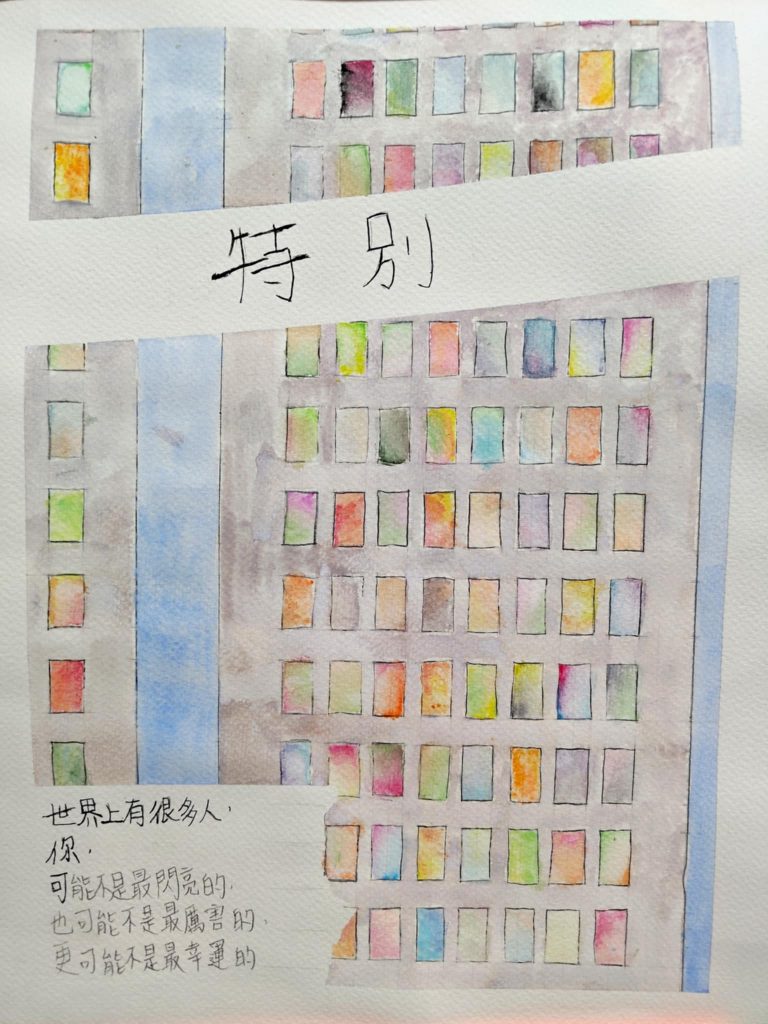 特別
世界上有很多人,
你,
可能不是最閃亮的,
也可能不是最厲害的,
更可能不是最幸運的